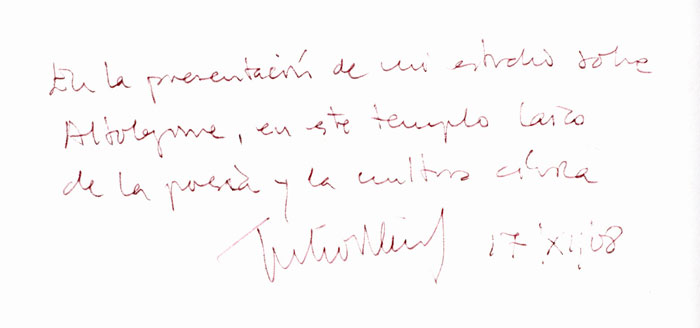 En la presentación de mi estudio sobre
Altolaguirre, en este templo laico
de la poesía y la cultura cívica
17 XII 08